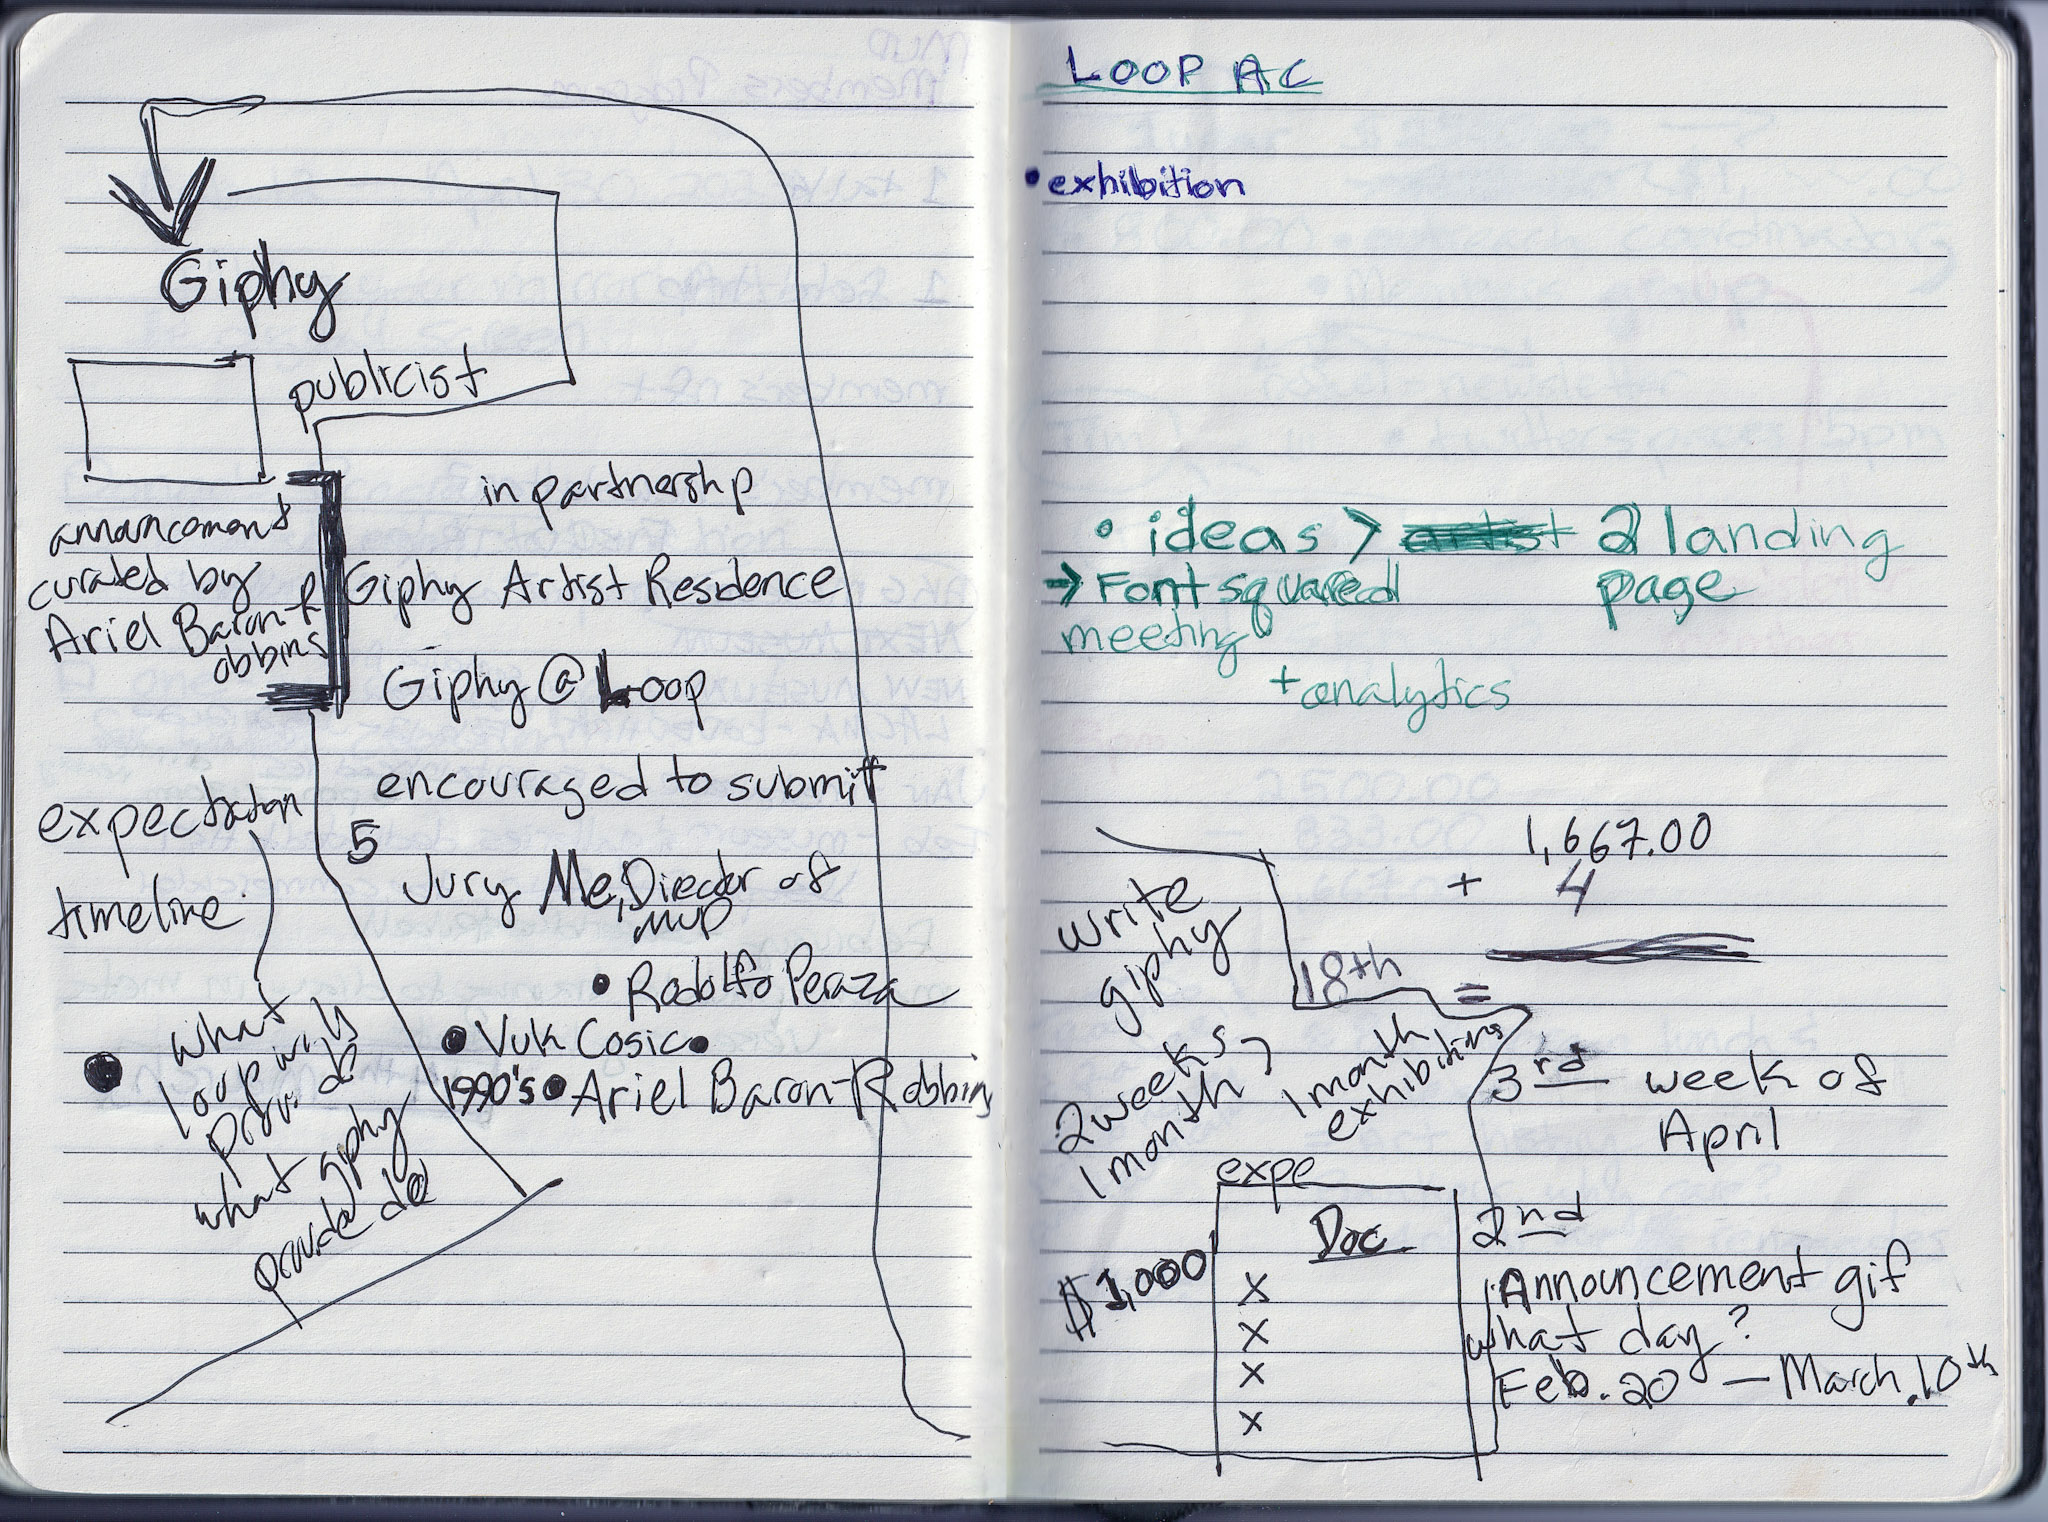 Giphy
publicist
in partnershp
announcement
curated by
Ariel Baron-R
obbins
Giphy Artist Residence
Giphy @ Loop
encouraged to submit
expectation
timeline
5
Jury Me, Director of
MUD
• Rodolfo Peraza
• Vuk Cosic •
1990's • Ariel Baron-Robbins
• what
loop will
provide
what giphy
provide
LOOP AC
• exhibition
• ideas > artist 2 landing
page
→ Font squared
meeting
+ analytics
1,667.00
+ 4
=
write
giphy
18th
2 weeks,
1 month
1 month
exhibiting
exhibition
3rd week of
April
expe
Doc
$1,000
X
X
X
X
2nd
Announcement gif
what day?
Feb. 20 — March 10th